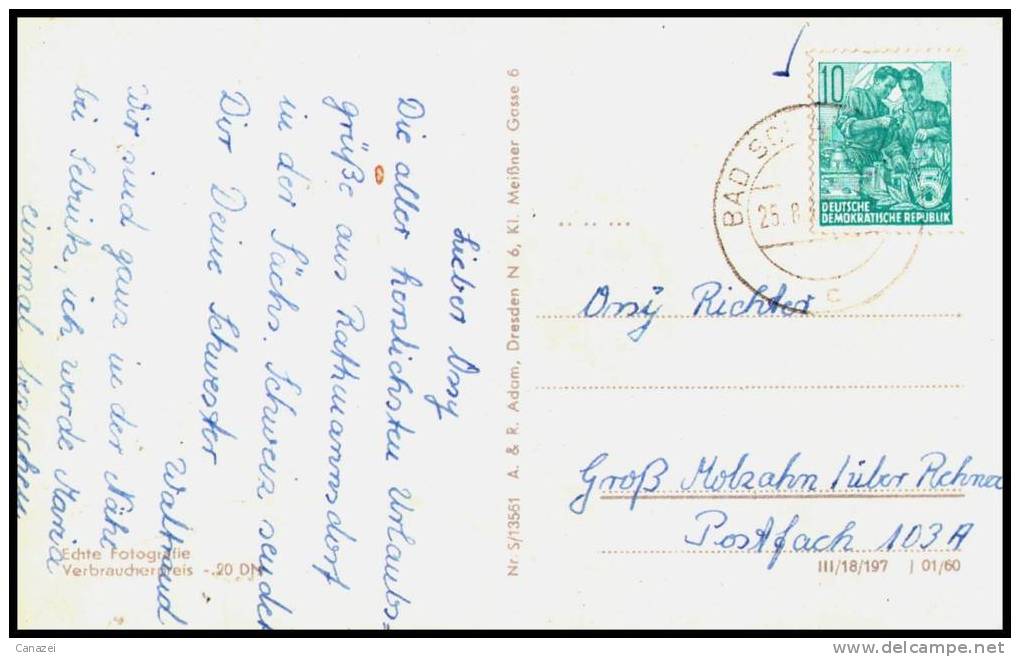 Lieber Ossy
Die aller herzlichsten Urlaubs=
grüße aus Rathmannsdorf
in der Sächs. Schweiz sendet
Dir Deine Schwester
Waltraud
Wir sind ganz in der Nähe
bei Sebnitz, ich werde Maria
einmal besuchen.
Echte Fotografie
Verbraucherpreis -.20 DM
Nr. S/13561 A. & R. Adam, Dresden N 6, Kl. Meißner Gasse 6
10
5
DEUTSCHE
DEMOKRATISCHE REPUBLIK
BAD SC
25.8
c
Ossy Richter
Groß Molzahn / über Rehna
Postfach 103A
III/18/197 | 01/60
Canazei
http://www.delcampe.net